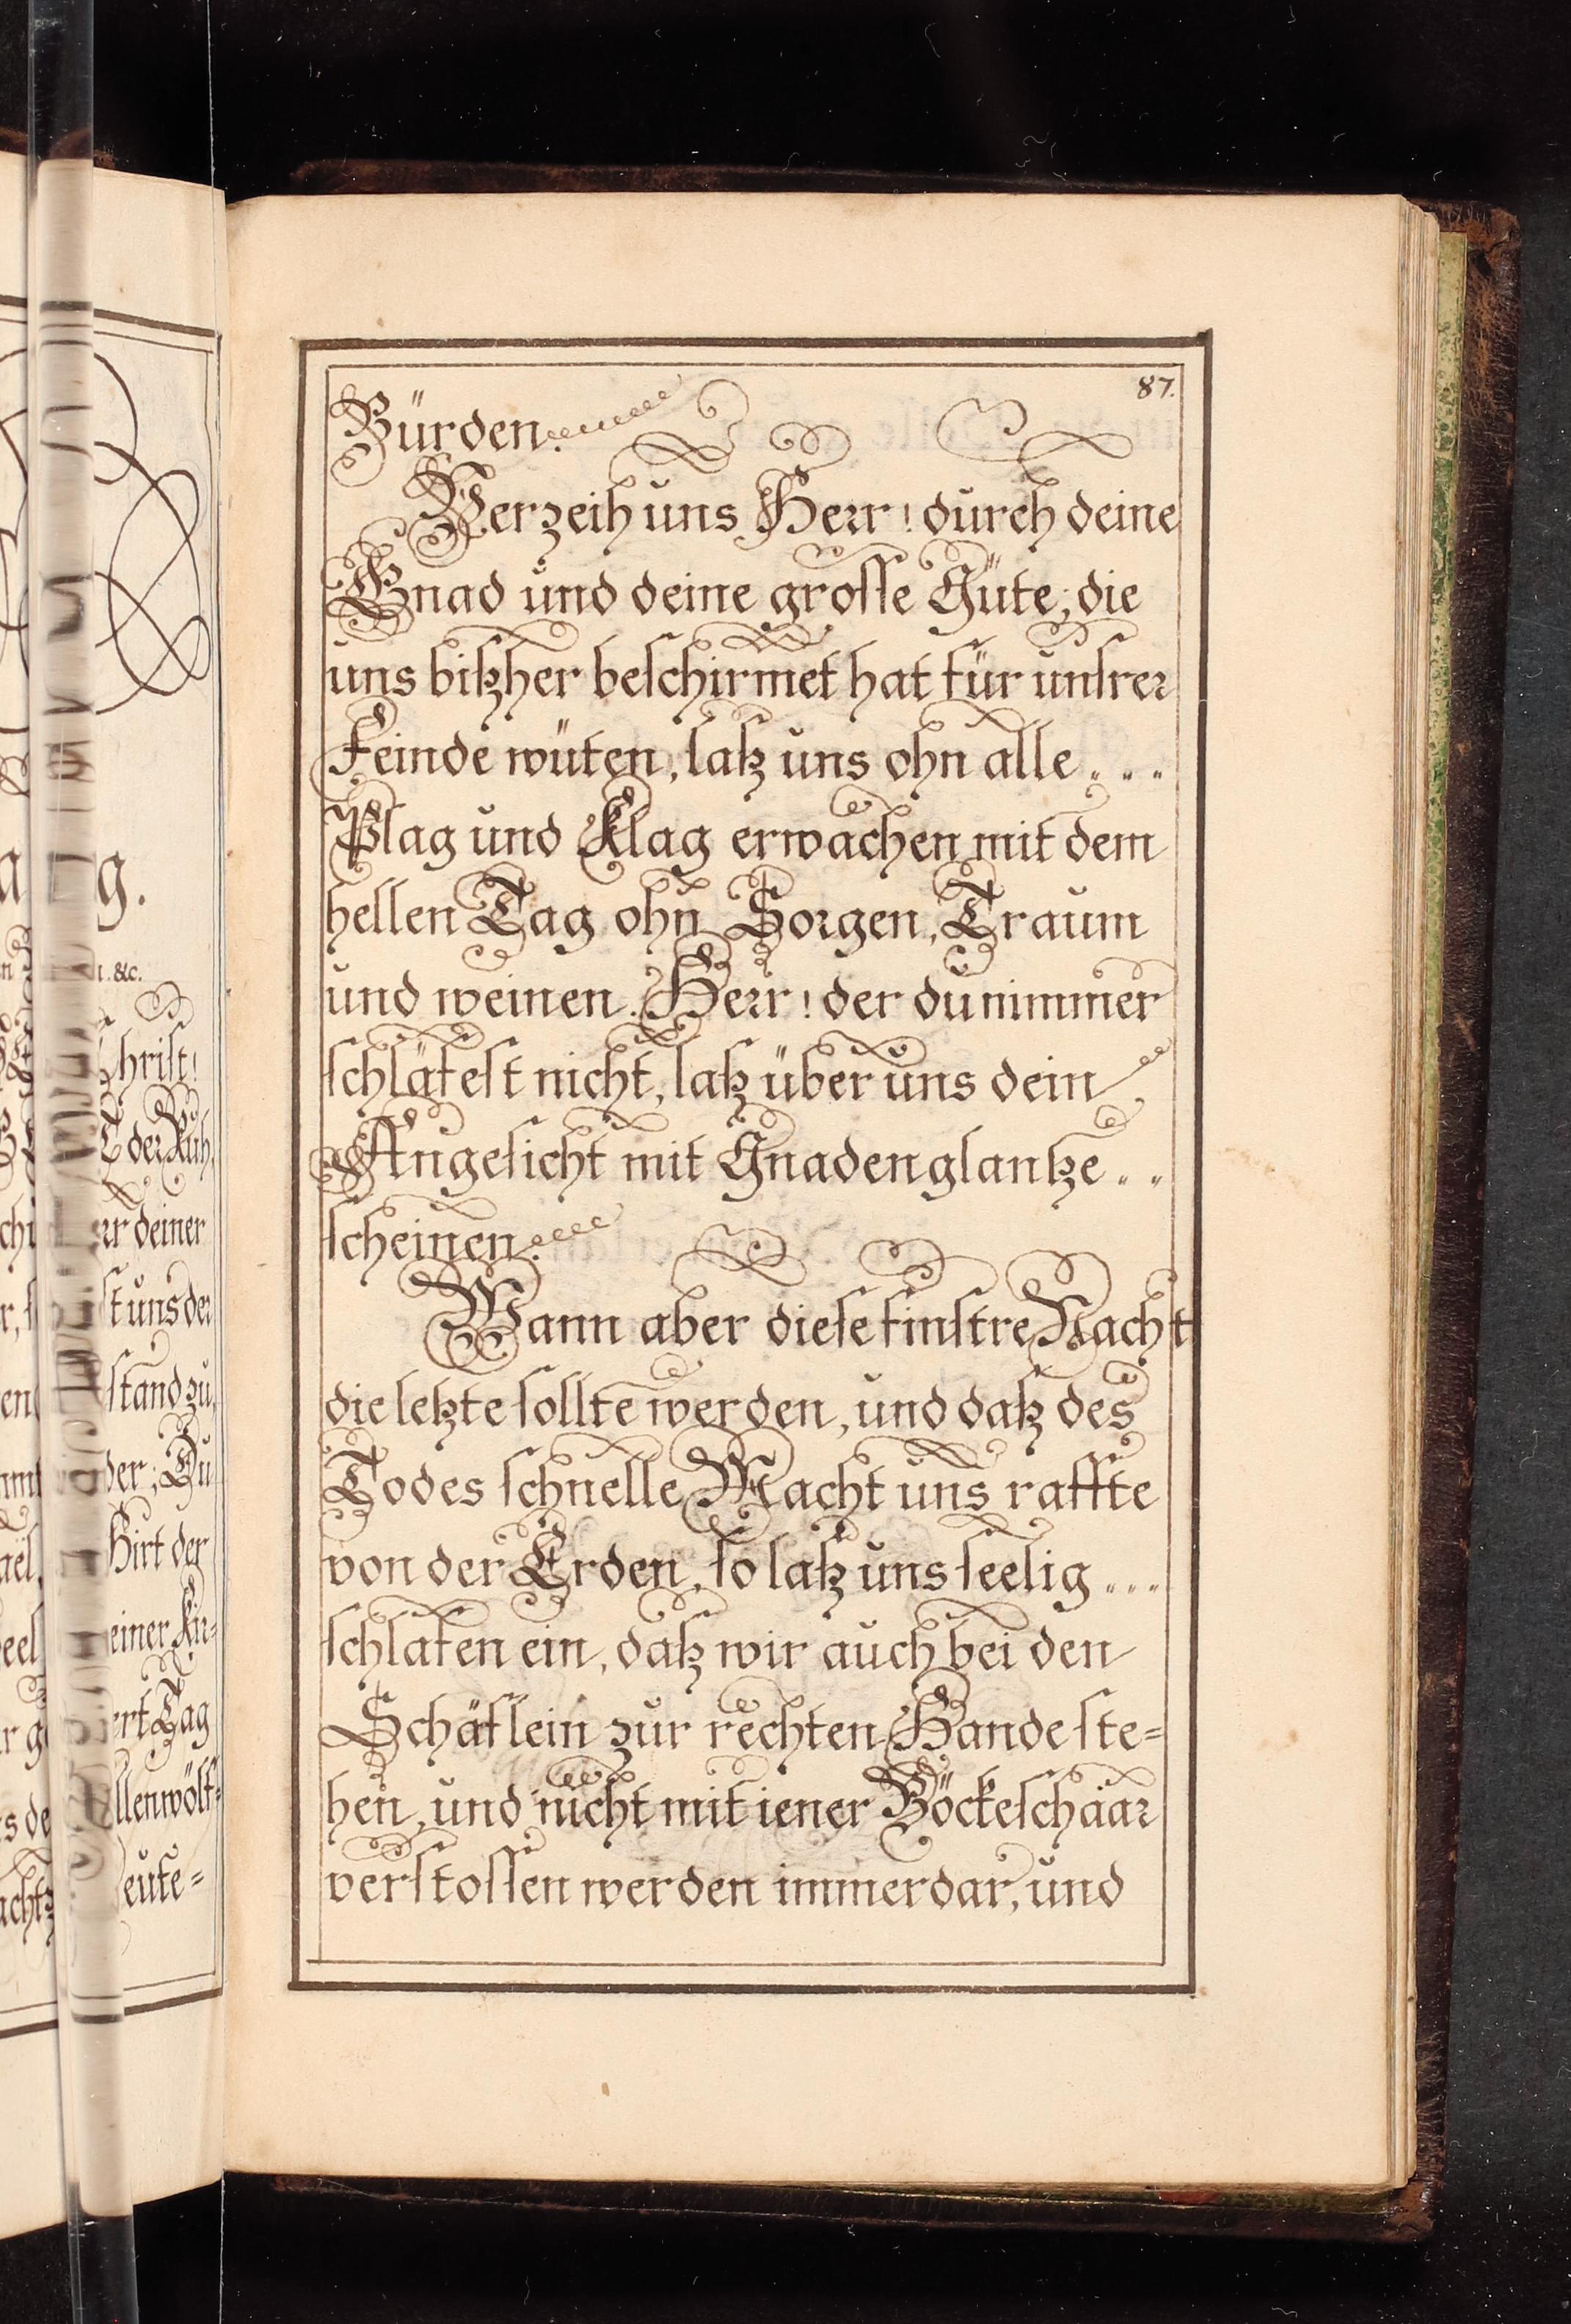 87.
Bürden.
Verzeih uns Herr! durch deine
Gnad und deine grosse Güte; die
uns bißher beschirmet hat für unsrer
Feinde wüten, laß uns ohn alle...
Plag und Klag erwachen mit dem
hellen Tag ohn Sorgen, Traum
und weinen. Herr! der du nimmer
schläfest nicht, laß über uns dein
Angesicht mit Gnadenglantze..
scheinen.
Wann aber diese finstre Nacht
die letzte sollte werden, und daß des
Todes schnelle Macht uns raffte
von der Erden, so laß uns seelig...
schlafen ein, daß wir auch bei den
Schäflein zur rechten Hande ste=
hen, und nicht mit iener Böckeschaar
verstossen werden immerdar, und